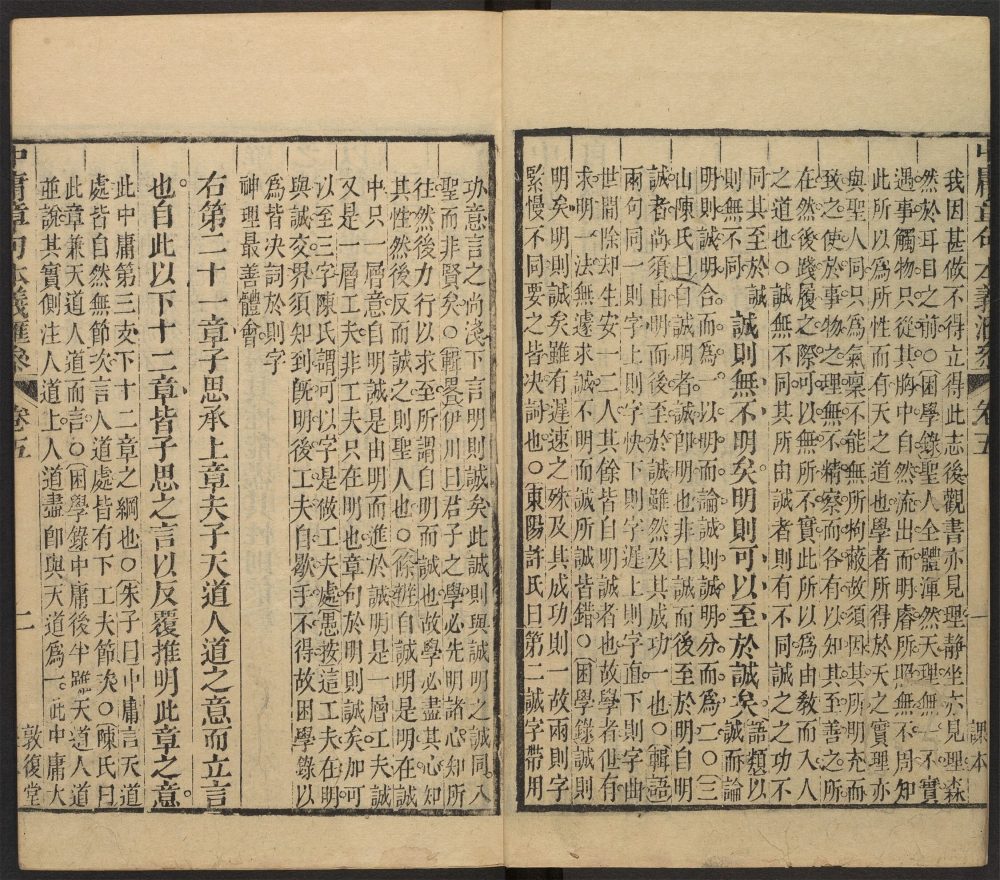 我因甚做不得立得此志後觀書亦見理靜坐亦見理森
然於耳目之前○困學錄聖人全體渾然天理無一不實
遇事觸物只從其胸中自然流出而明睿所照無不周知
此所以為所性而有天之道也學者所得於天之實理亦
與聖人同只為氣稟不能無所拘蔽故須因其所明充而
致之使於事物之理無不精察而各有以知其至善之所
在然後踐履之際可以無所不實此所以為由教而入人
之道也○誠無不同其所由誠者則有不同誠之之功不
同其至於誠則無不同
誠則無不明矣明則可以至於誠矣
語類以誠而論
明則誠明合而為一以明而論誠則誠明分而為二○三
山陳氏曰自誠明者誠卽明也非曰誠而後至於明自明
誠者尚須由明而後至於誠雖然及其成功一也○輯語
世間除却生安一二人其餘皆自明誠者也故學者但有
兩句同一則字上則字快下則字遲上則字直下則字曲
求明一法無遽求誠不明而誠所誠皆錯○困學錄誠則
明矣明則誠矣雖有遲速之殊及其成功則一故兩則字
緊慢不同要之皆決詞也○東陽許氏曰第二誠字帶用
功意言之尚淺下言明則誠矣此誠則與誠明之誠同入
聖而非賢矣○輯畧伊川曰君子之學必先明諸心知所
往然後力行以求至所謂自明而誠也故學必盡其心知
其性然後反而誠之則聖人也○條辨自誠明是明在誠
中只一層意自明誠是由明而進於誠明是一層工夫誠
又是一層工夫非工夫只在明也章句於明則誠矣加可
以至三字陳氏謂可以字是做工夫處愚按這工夫在明
與誠交界須知到旣明後工夫自歇手不得故困學錄以
為皆決詞於則字
神理最善體會
右第二十一章子思承上章夫子天道人道之意而立言
也自此以下十二章皆子思之言以反覆推明此章之意
此中庸第三支下十二章之綱也○朱子曰中庸言天道
處皆自然無節次言人道處皆有下工夫節次○陳氏曰
此章兼天道人道而言○困學錄中庸後半雖天道人道
並說其實側注人道上人道盡卽與天道為一此中庸大
中庸章句本義匯參
卷五
一
課本
二
敦復堂